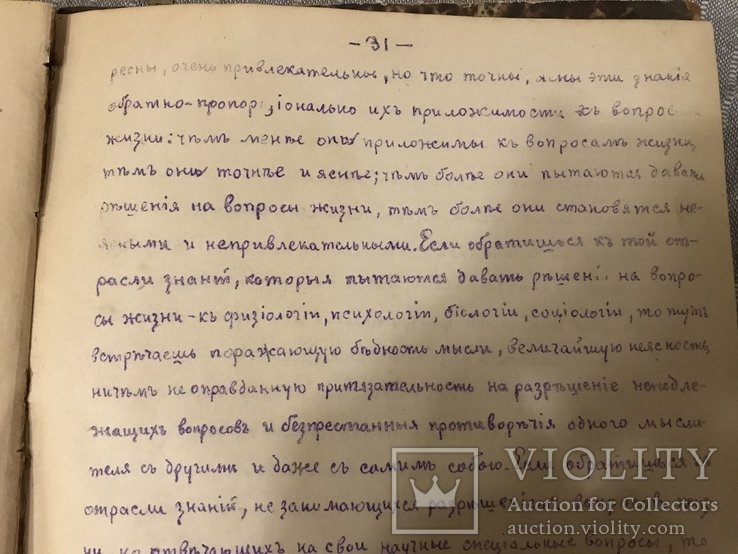 — 31 —
ресны, очень привлекательны, но что точны, ясны эти знанія
обратно-пропорціонально ихъ приложимости къ вопросамъ
жизни: чѣмъ менѣе они приложимы къ вопросамъ жизни,
тѣмъ они точнѣе и яснѣе; чѣмъ болѣе они пытаются давать
рѣшенія на вопросы жизни, тѣмъ болѣе они становятся не-
ясными и непривлекательными. Если обратишься къ той от-
расли знаній, которыя пытаются давать рѣшені на вопро-
сы жизни - къ физіологіи, психологіи, біологіи, соціологіи, то тутъ
встрѣчаешь поражающую бѣдность мысли, величайшую неясность,
ничѣмъ не оправданную притязательность на разрѣшеніе неподле-
жащихъ вопросовъ и безпрестанныя противорѣчія одного мысли-
теля съ другими и даже съ самимъ собою. Если обратишься къ
отрасли знаній, не занимающихся разрѣшеніемъ вопросовъ жиз-
ни, но отвѣчающихъ на свои научные спеціальные вопросы, то
VIOLITY
Auction for Collectors
auction.violity.com